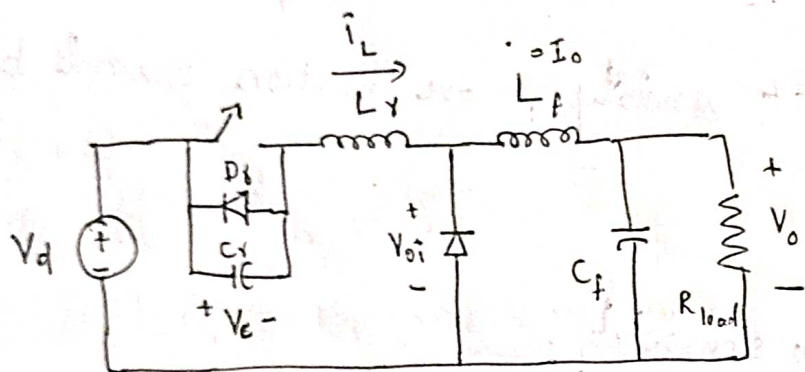 i_L
I_o
L_r
L_f
D_r
C_r
+ V_c -
V_d
+
-
+
V_oi
-
C_f
R_load
+
V_o
-